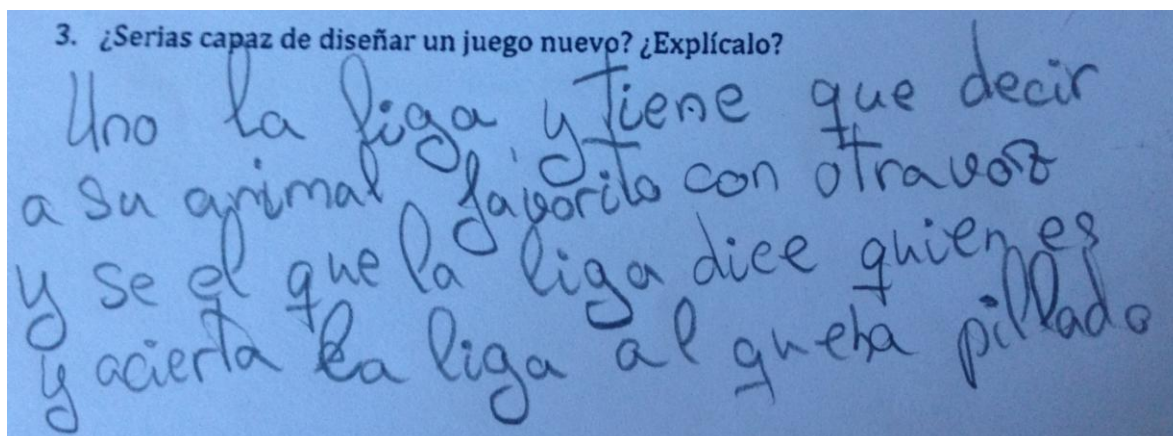 3. ¿Serias capaz de diseñar un juego nuevo? ¿Explícalo?
Uno la liga y tiene que decir
a su animal favorito con otra voz
y se el que la liga dice quien es
y acierta la liga al que ha pillado